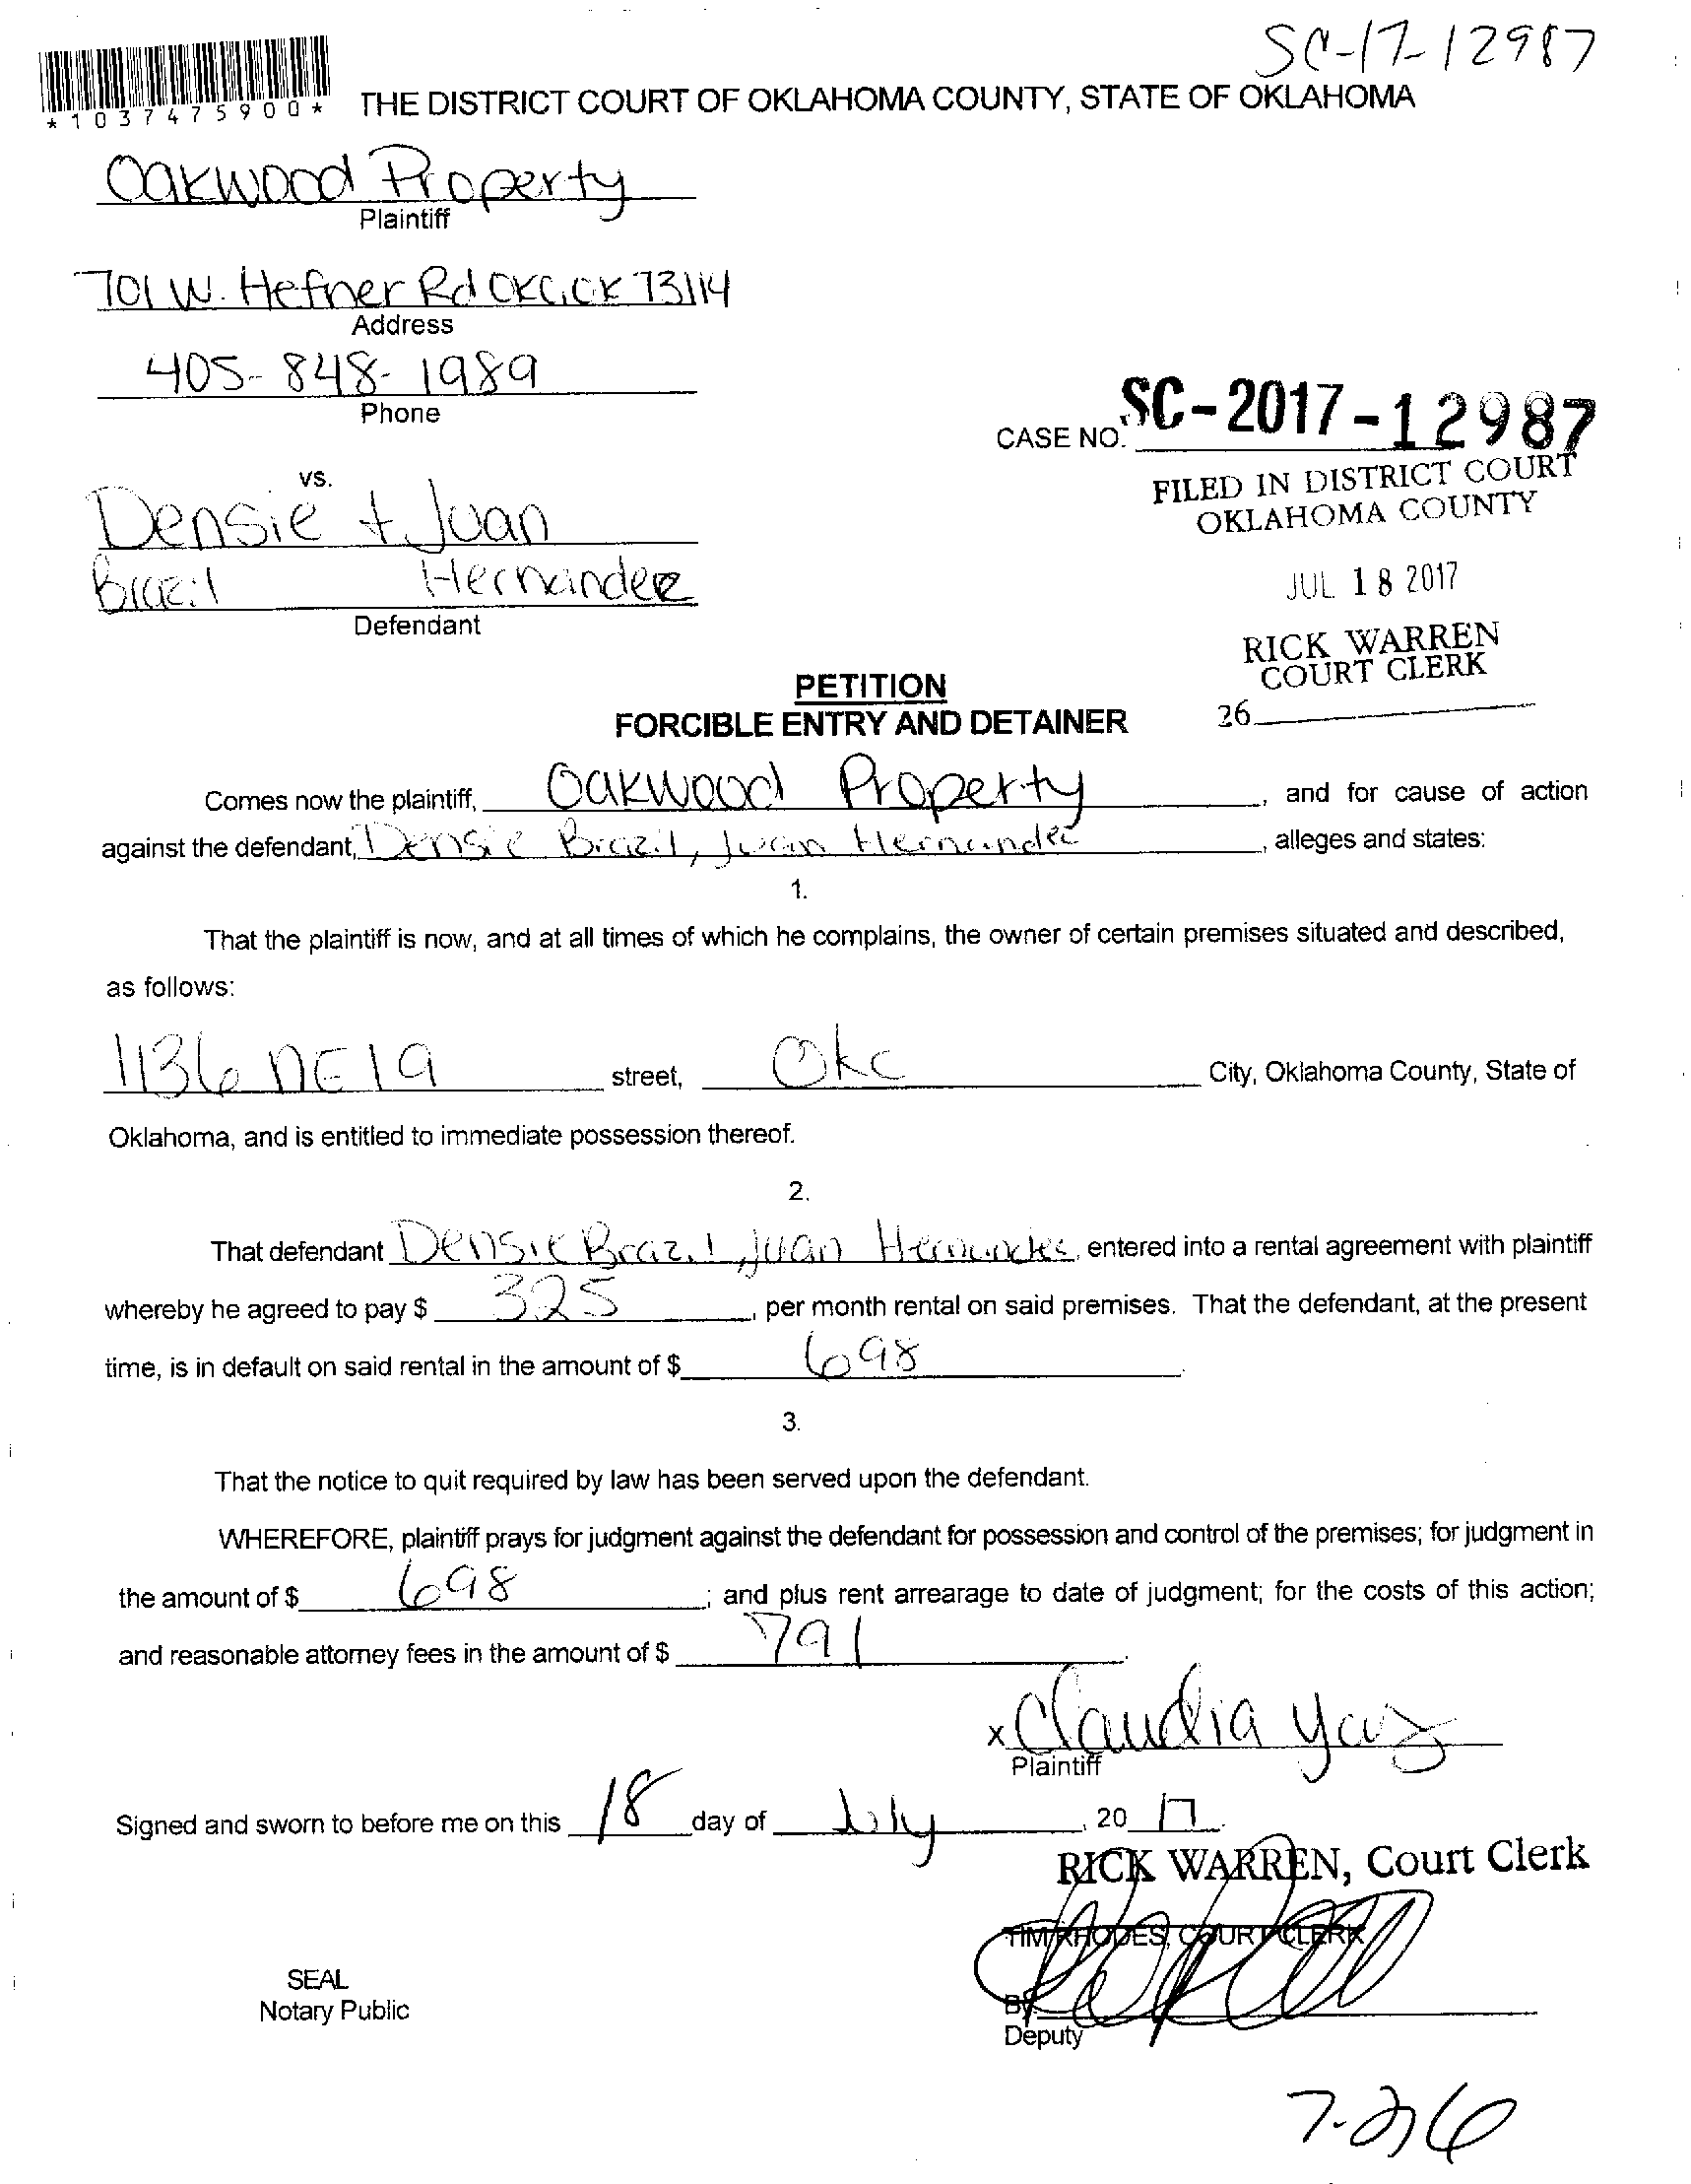 SC-17-12987
*1037475900*
THE DISTRICT COURT OF OKLAHOMA COUNTY, STATE OF OKLAHOMA
Oakwood Property
Plaintiff
701 W. Hefner Rd OKC, OK 73114
Address
405-848-1989
Phone
CASE NO. SC-2017-12987
FILED IN DISTRICT COURT
OKLAHOMA COUNTY
vs.
Densie + Juan
Brazil Hernandez
Defendant
JUL 18 2017
RICK WARREN
COURT CLERK
26
PETITION
FORCIBLE ENTRY AND DETAINER
Comes now the plaintiff, Oakwood Property, and for cause of action
against the defendant, Densie Brazil, Juan Hernandez, alleges and states:
1.
That the plaintiff is now, and at all times of which he complains, the owner of certain premises situated and described,
as follows:
1136 NE 19 street, Okc City, Oklahoma County, State of
Oklahoma, and is entitled to immediate possession thereof.
2.
That defendant Densie Brazil, Juan Hernandez, entered into a rental agreement with plaintiff
whereby he agreed to pay $ 325, per month rental on said premises. That the defendant, at the present
time, is in default on said rental in the amount of $ 698.
3.
That the notice to quit required by law has been served upon the defendant.
WHEREFORE, plaintiff prays for judgment against the defendant for possession and control of the premises; for judgment in
the amount of $ 698; and plus rent arrearage to date of judgment; for the costs of this action;
and reasonable attorney fees in the amount of $ 791.
x Claudia
Plaintiff
Signed and sworn to before me on this 18 day of July, 2017.
RICK WARREN, Court Clerk
TIM RHODES, COURT CLERK
SEAL
Notary Public
By
Deputy
7-26